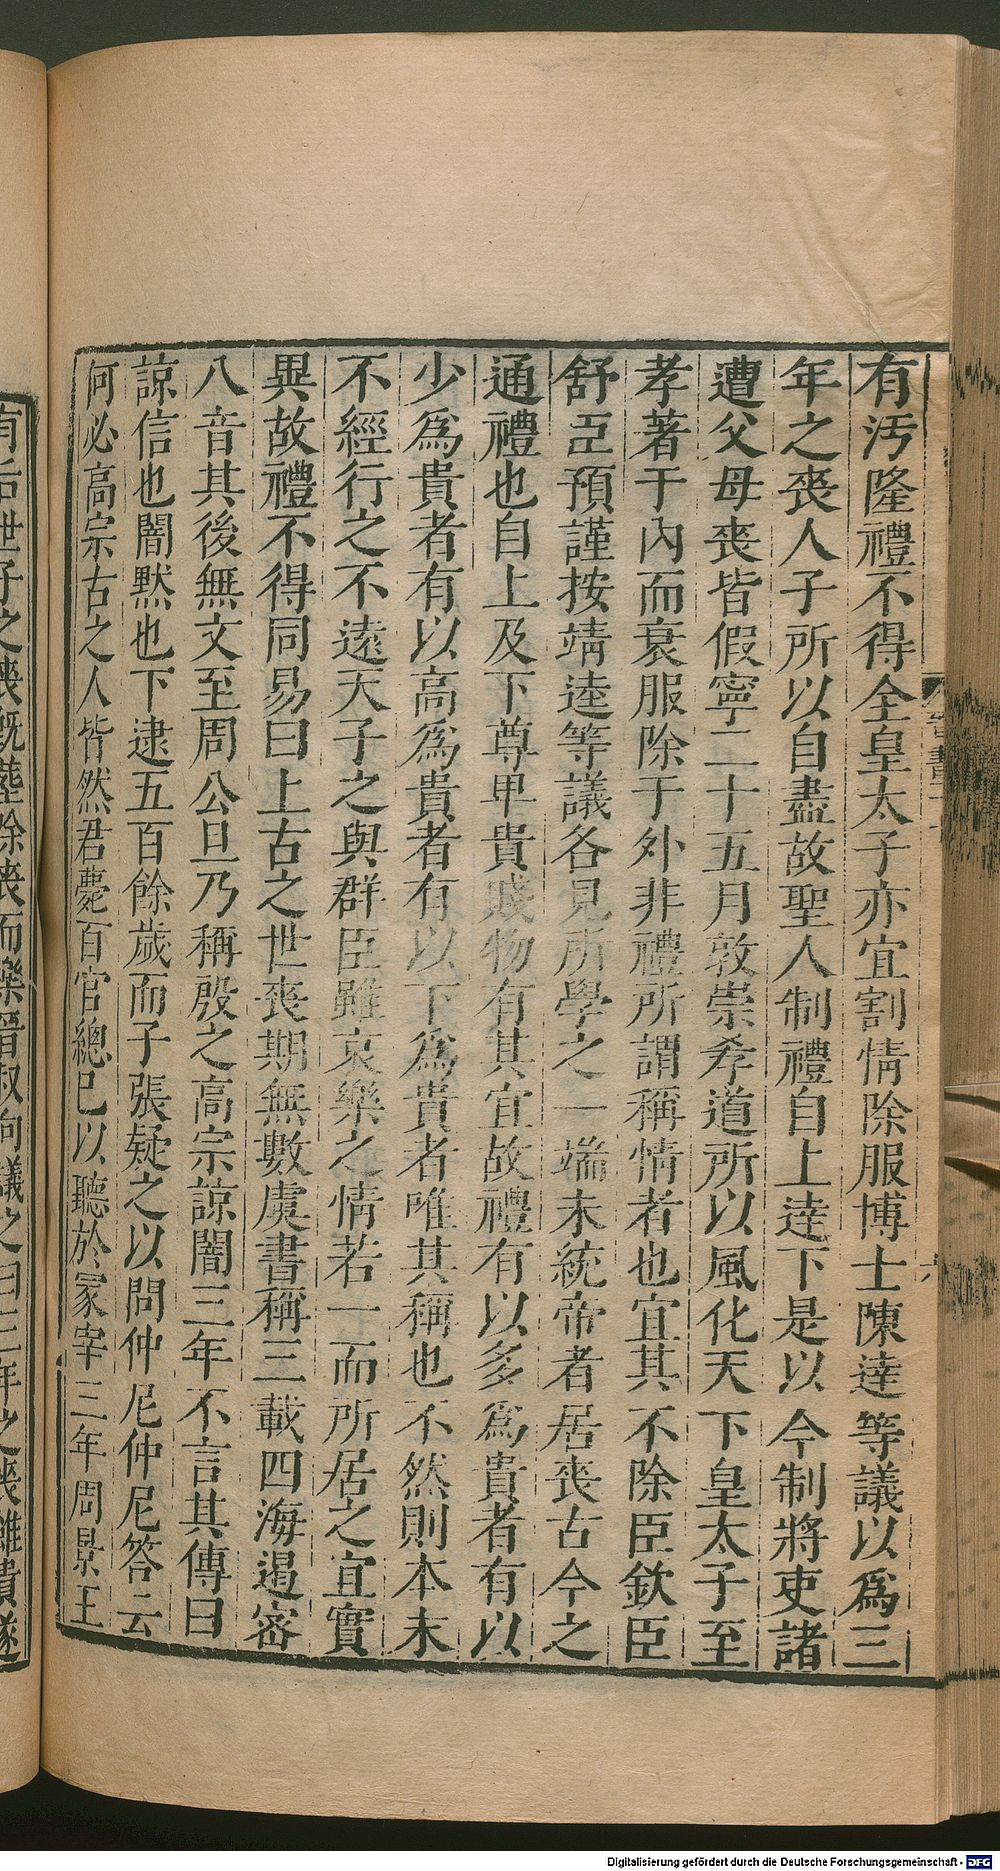 有汚隆禮不得全皇太子亦宜割情除服博士陳逵等議以爲三
年之喪人子所以自盡故聖人制禮自上逹下是以今制將吏諸
遭父母喪皆假寧二十五月敦崇孝道所以風化天下皇太子至
孝著于内而衰服除于外非禮所謂稱情者也宜其不除臣欽臣
舒臣預謹按靖逵等議各見所學之一端未統帝者居喪古今之
通禮也自上及下尊卑貴賤物有其宜故禮有以多爲貴者有以
少爲貴者有以高爲貴者有以下爲貴者唯其稱也不然則本末
不經行之不遠天子之與群臣雖哀樂之情若一而所居之宜實
異故禮不得同易曰上古之世喪期無數虞書稱三載四海遏密
八音其後無文至周公旦乃稱殷之高宗諒闇三年不言其傳曰
諒信也闇默也下逮五百餘歲而子張疑之以問仲尼仲尼答云
何必高宗古之人皆然君薨百官總已以聽於冢宰三年周景王
有后世子之喪既葬除喪而樂晋叔向議之曰三年之喪雖貴遂
Digitalisierung gefördert durch die Deutsche Forschungsgemeinschaft - DFG